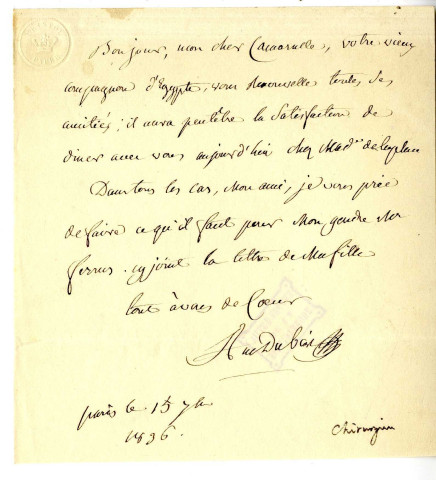 Bonjour, mon cher votre vieux
compagnon d'Egypte, vous renouvelle toutes ses
amitiés; il aura peutêtre la satisfaction de
diner avec vous aujourd'hui chez Mad.
Dans tous les cas, mon ami, je vous prie
de faire ce qu'il faut pour mon gendre Mr
ferrus. cy joint la lettre de ma fille
tout à vous de Coeur
Ant Dubois
paris le 15 7bre
1836.
chirurgien